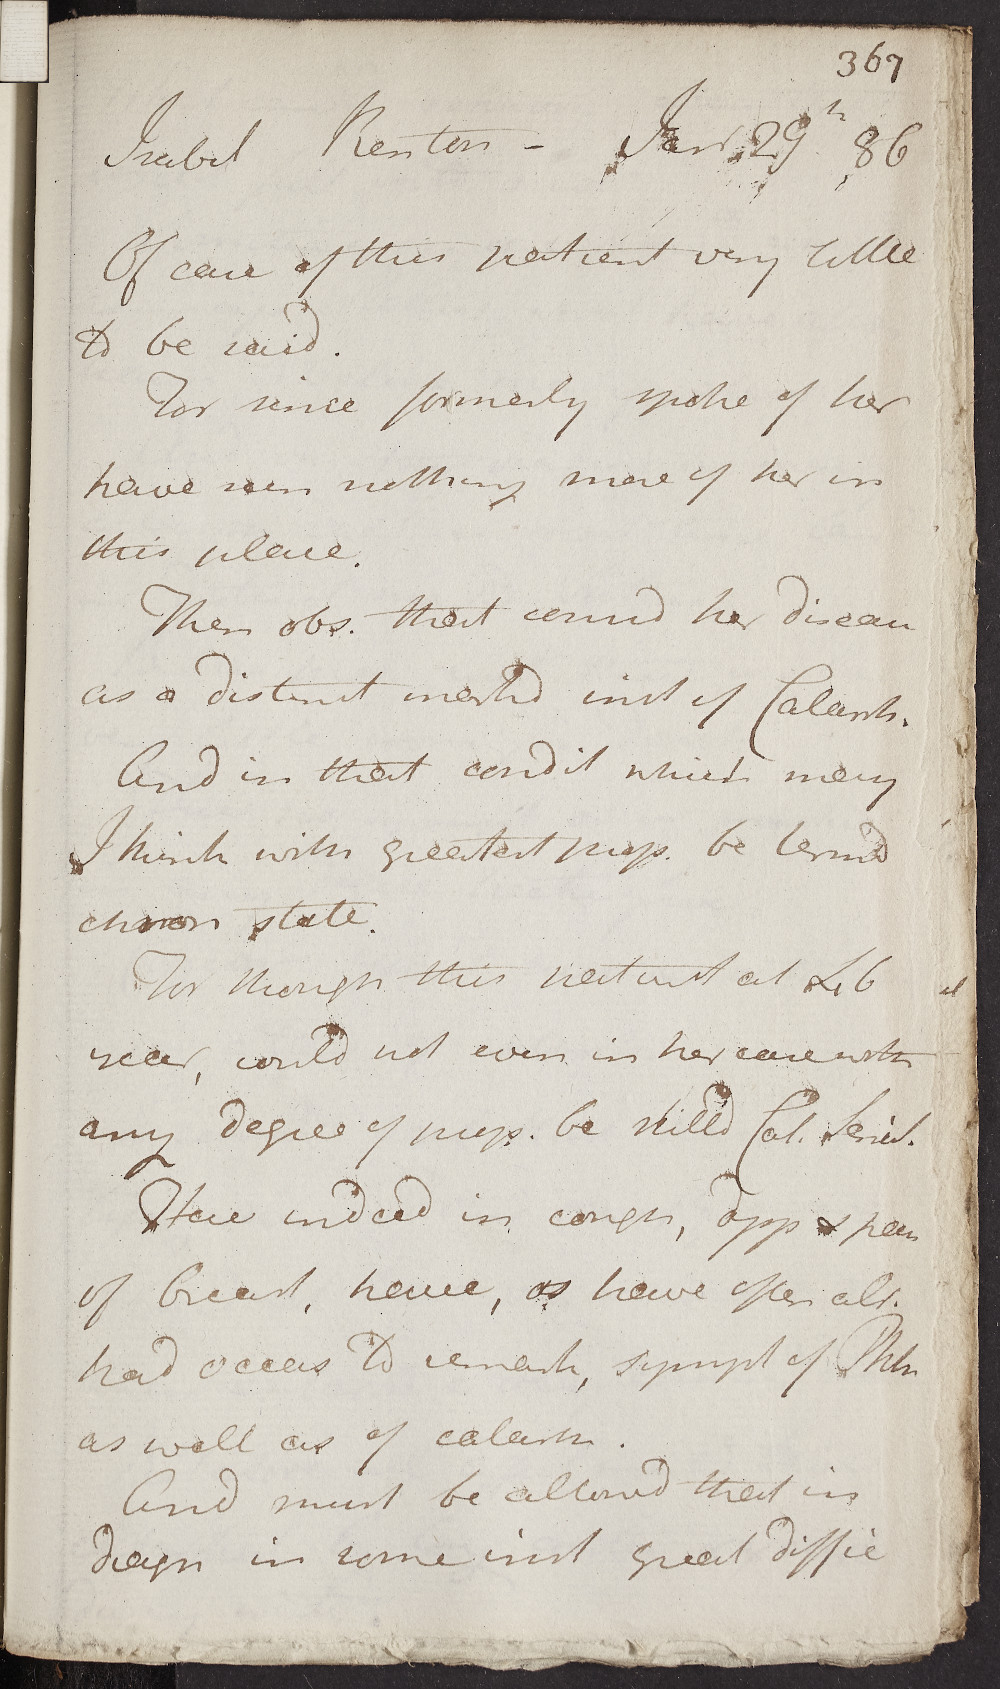 367
Isabel Renton - Janr. 29th 86
Of case of this patient very little
to be said.
For since formerly spoke of her
have seen nothing more of her in
this place.
Then obs. that consid her diseas
as a distinct markd inst of Catarrh.
And in that condit which may
I think with greatest prop. be termd
chron state.
For though this patient at 46
year, could not even in her case with
any degree of prop. be stilld Cat. Senil.
Have indeed in cough, opp & pain
of breast, have, as have often alr.
had occas to remark, sympt of Phth
as well as of catarrh.
And must be allowd that in
diagn in some inst great diffic